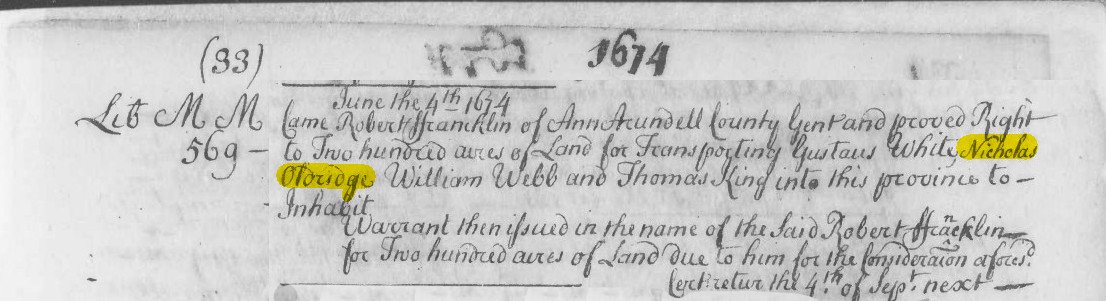 1674
(33)
June the 4th 1674
Lib M M
Came Robert ffrancklin of Ann Arundell County Gent and proved Right
569 -
to Two hundred acres of Land for Transporting Gustaus White Nicholas
Oldridge William Webb and Thomas King into this province to -
Inhabit
Warrant then issued in the name of the Said Robert ffrancklin
for Two hundred acres of Land due to him for the Consideraion aforesd.
Cert retur the 4th. of Sept. next -